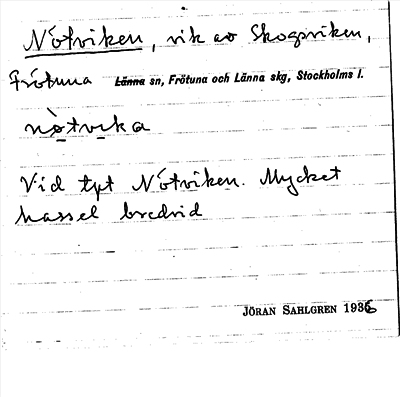 Nötviken, vik av Skogsviken,
Frötuna Länna sn, Frötuna och Länna skg, Stockholms l.
nò̱tvi̱ka
Vid tpt Nötviken. Mycket
hassel bredvid
JÖRAN SAHLGREN 1936